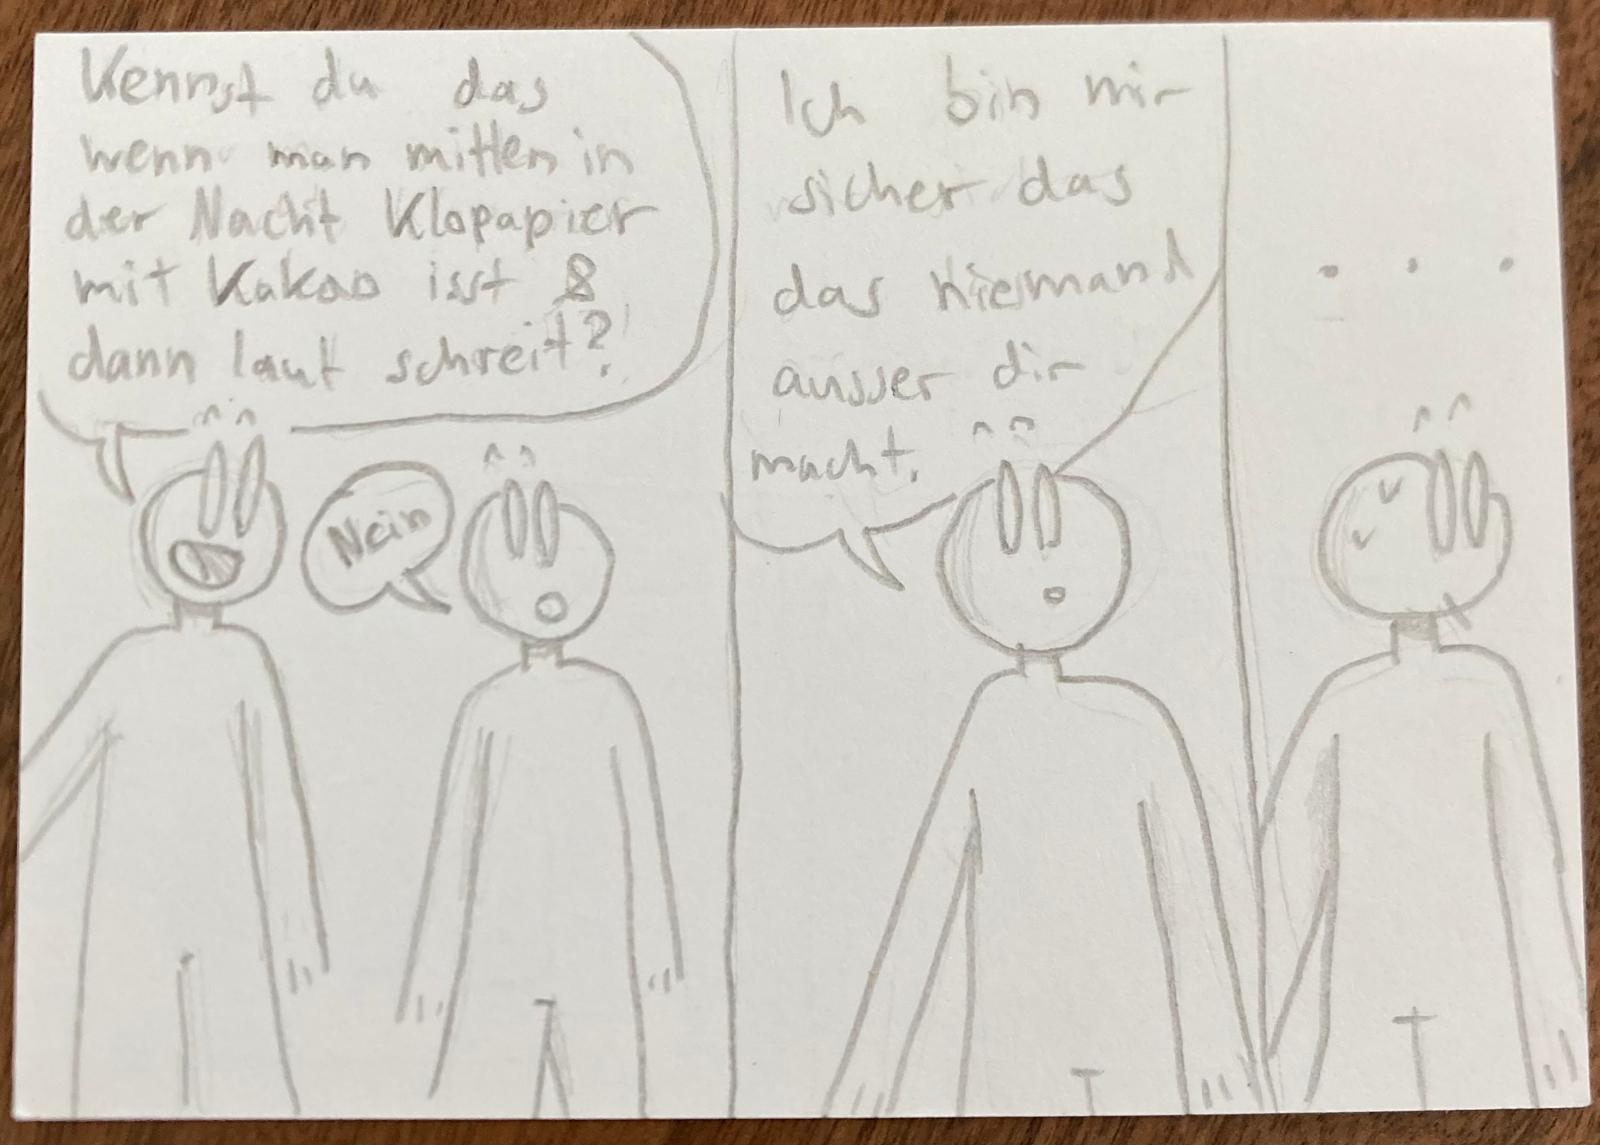 Kennst du das
wenn man mitten in
der Nacht Klopapier
mit Kakao isst &
dann laut schreit?!
Nein
Ich bin mir
sicher das
das niemand
ausser dir
macht.
. . .